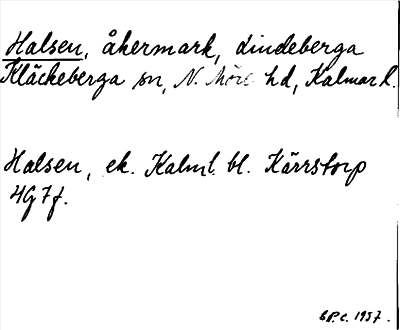 Halsen, åkermark, Lindeberga
Kläckeberga sn, N. Möre hd, Kalmar l.
Halsen, ek. Kalml. bl. Kärrstorp
4G7f.
1957.